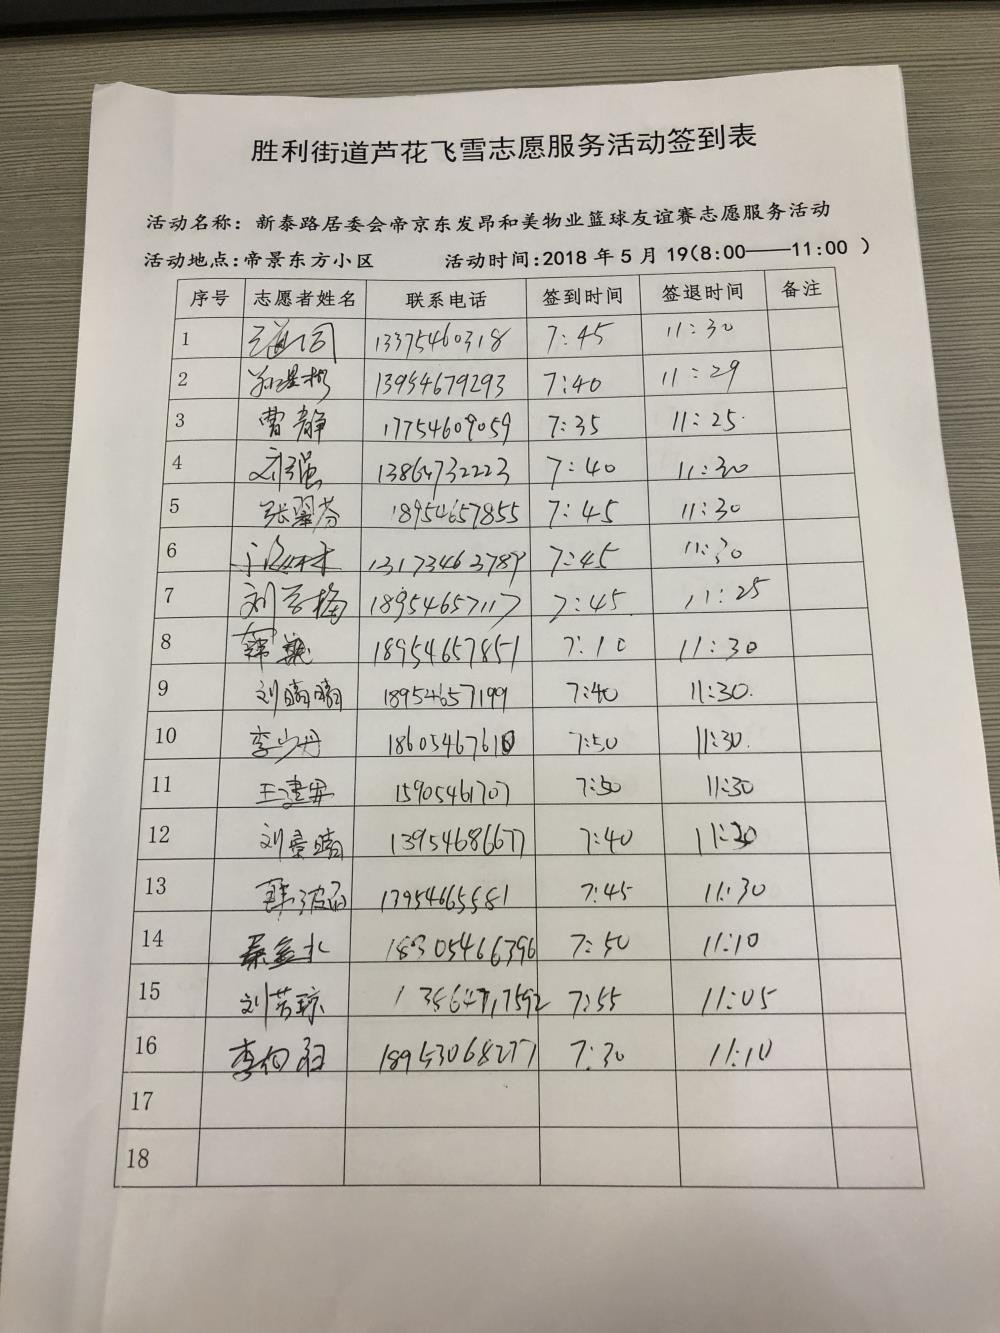 胜利街道芦花飞雪志愿服务活动签到表
活动名称：新泰路居委会帝京东发昂和美物业篮球友谊赛志愿服务活动
活动地点:帝景东方小区 活动时间:2018 年 5 月 19(8:00——11:00 )
序号 志愿者姓名 联系电话 签到时间 签退时间 备注
1 13375460318 7:45 11:30
2 13954679293 7:40 11:29
3 曹静 17754609059 7:35 11:25
4 13864732223 7:40 11:30
5 张翠芬 18954657855 7:45 11:30
6 13173463789 7:45 11:30
7 刘 梅 18954657117 7:45 11:25
8 韩 18954657851 7:10 11:30
9 刘晴晴 18954657199 7:40 11:30
10 李少丹 18605467610 7:50 11:30
11 王建军 15905461707 7:50 11:30
12 刘景晴 13954686677 7:40 11:30
13 13954665581 7:45 11:30
14 18305466396 7:50 11:10
15 刘芳琼 7:55 11:05
16 李 18953068277 7:30 11:10
17
18